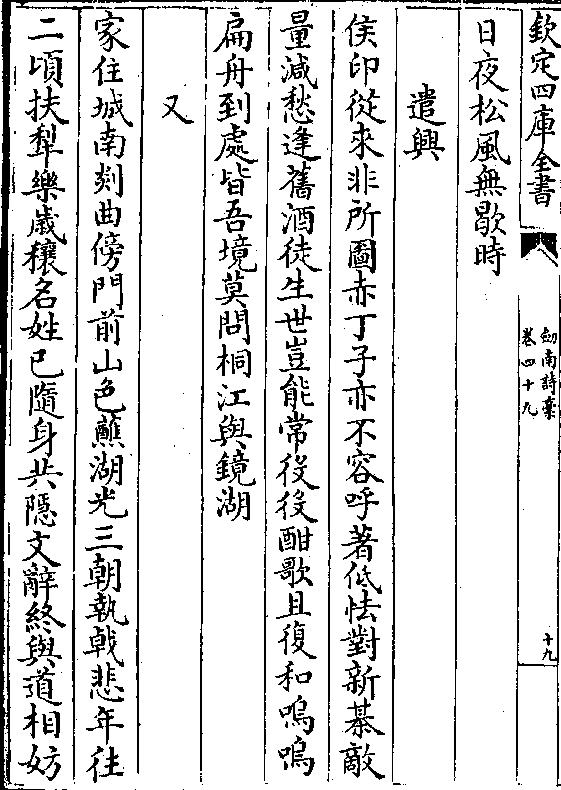 欽定四庫全書
劔南詩稾
卷四十九
十九
日夜松風無歇時
遣興
侯印從來非所圖赤丁子亦不容呼著低怯對新棊敵
量減愁逢舊酒徒生世豈能常役役酣歌且復和嗚嗚
扁舟到處皆吾境莫問桐江與鏡湖
又
家住城南剡曲傍門前山色蘸湖光三朝執戟悲年往
二頃扶犂樂歲穰名姓已隨身共隱文辭終與道相妨